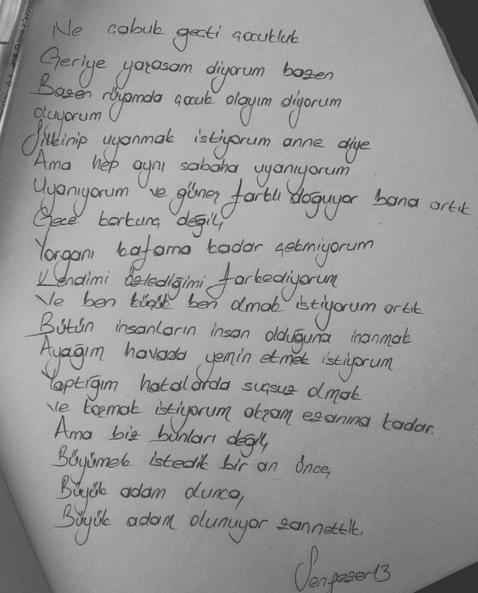 Ne çabuk geçti çocukluk
Geriye yazasam diyorum bazen
Bazen rüyamda çocuk olayım diyorum
oluyorum
Silkinip uyanmak istiyorum anne diye
Ama hep aynı sabaha uyanıyorum
Uyanıyorum ve güneş farklı doğuyor bana artık
Gece korkunç değil,
Yorganı kafama kadar çekmiyorum
Kendimi özlediğimi farkediyorum
Ve ben küçük ben olmak istiyorum artık
Bütün insanların insan olduğuna inanmak
Ayağım havada yemin etmek istiyorum
Yaptığım hatalarda suçsuz olmak
Ve koşmak istiyorum akşam ezanına kadar.
Ama biz bunları değil,
Büyümek istedik bir an önce,
Büyük adam olunca,
Büyük adam olunuyor zannettik.